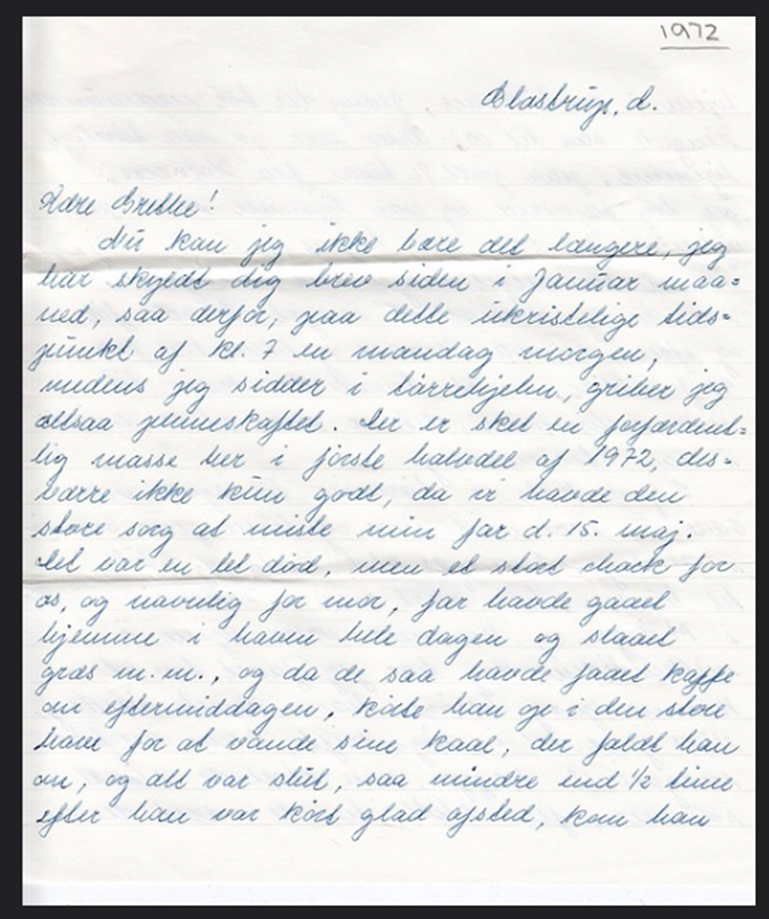 1972
Blastrup, d.
Kære Grethe!
Nu kan jeg ikke bære det længere, jeg
har skyldt dig brev siden i Januar maa=
ned, saa derfor, paa dette ukristelige tids=
punkt af kl. 7 en mandag morgen,
medens jeg sidder i tørrehjelm, griber jeg
altsaa penneskaftet. Der er sket en forfærdent=
lig masse her i første halvdel af 1972, des=
værre ikke kun godt, da vi havde den
store sorg at miste min far d. 15. maj.
Det var en let død, men et stort chock for
os, og navnlig for mor, far havde gaaet
hjemme i haven hele dagen og slaaet
græs m.m., og da de saa havde faaet kaffe
om eftermiddagen, kørte han op i den store
have for at vande sine kaal, der faldt han
om, og alt var slut, saa mindre end ½ time
efter han var kørt glad afsted, kom han